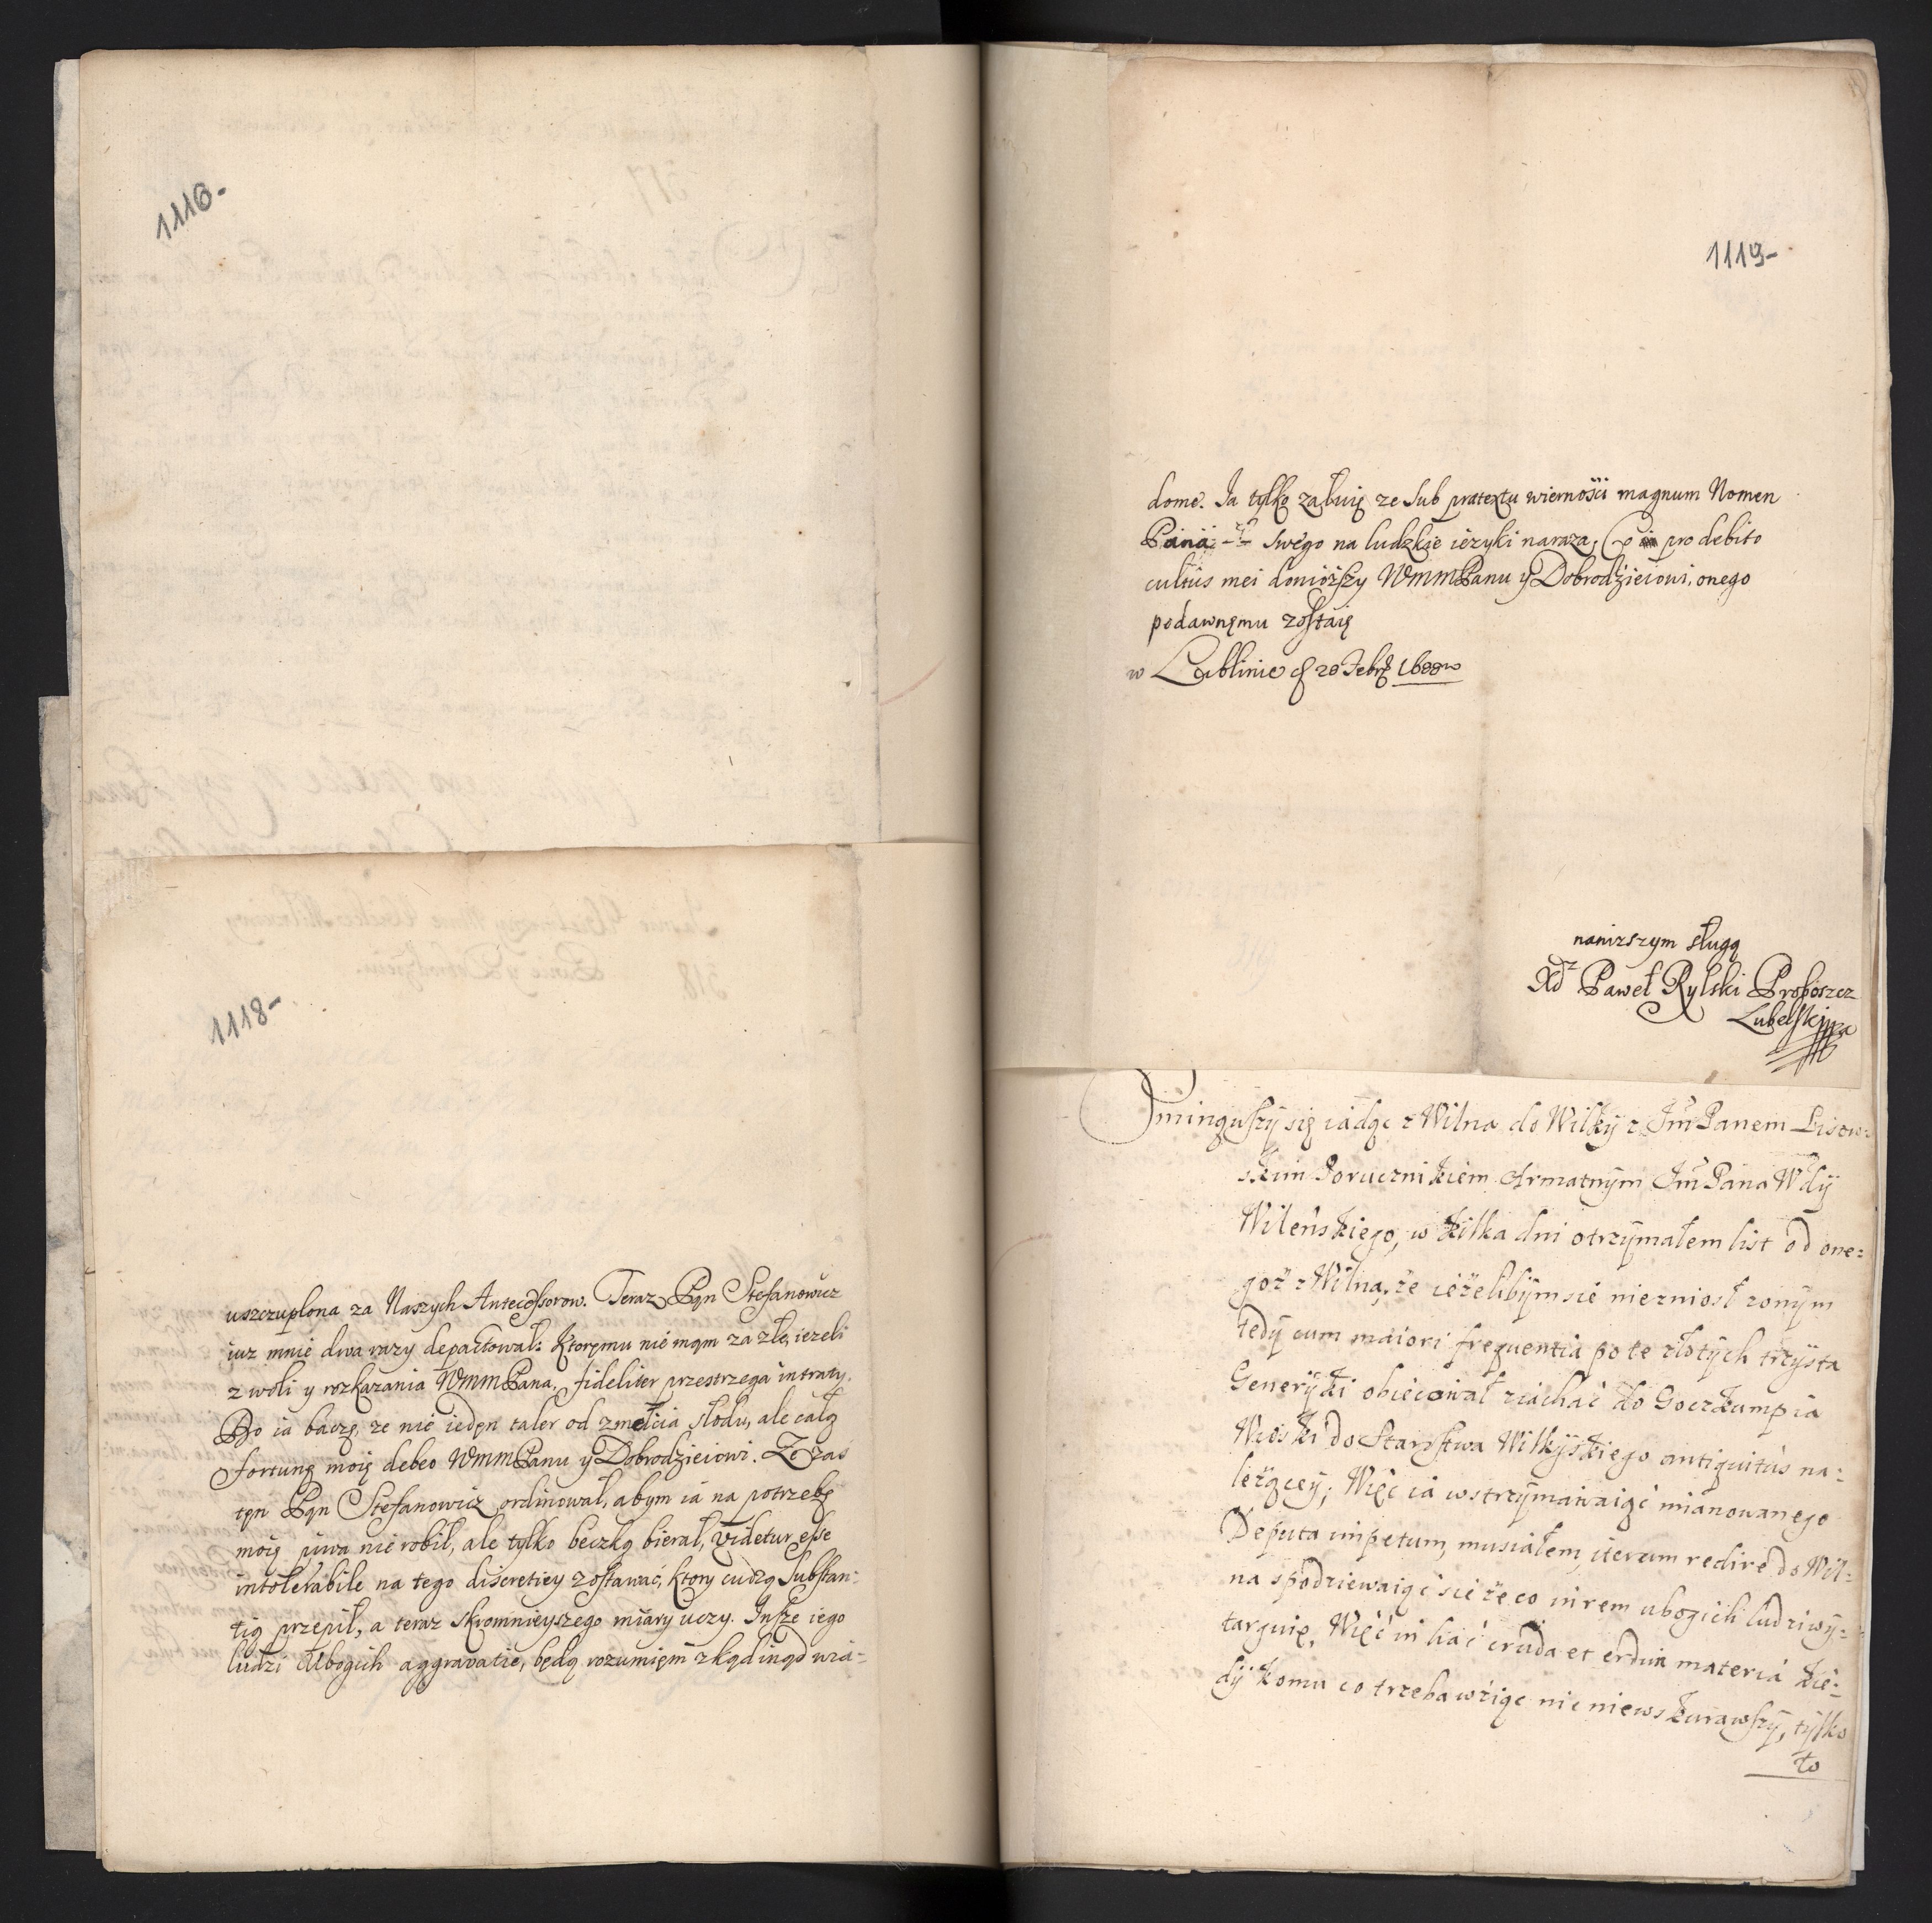 1116-
1118-
uszczuplona za Naszych Antecessorow. Teraz Pan Stefanowicz
iuz mnie dwa razy depactował: Ktoremu nie mam za złe, iezeli
z woli y rozkazania WmmPana, fideliter przestrzega intraty.
Bo ia baczę, ze nie ieden taler od zmełcia słodu, ale całą
fortunę moię debeo WmmPanu y Dobrodzieiowi. Ze zas
ten Pan Stefanowicz ordinował, abym ia na potrzebę
moię piwa nie robił, ale tylko beczką bierał, videtur esse
intolerabile na tego discretiey zostawać, ktory cudzą Substan:
tią przepił, a teraz skromnieyszego miary uczy. Insze iego
ludzi Ubogich aggravatie, będą rozumiem zkądinąd wia=
1119-
dome. Ja tylko załuię ze sub prætextu wiernosci magnum Nomen
Pana swego na ludzkie ięzyki naraza, pro debito
cultus mei doniozszy WmmPanu y Dobrodzieiowi, onego
podawnemu zostaię
w Lublinie 28 Febr 1688
nanizszym sługą
Xdz Paweł Rylski Proboszcz
Lubelski mppa
minąwszy się iadąc z Wilna do Wilky z Jm Panem Lisow:
skim Porucznikiem Armatnym Jm Pana Wdy
Wilenskiego, w kilka dni otrzymałem list od one=
goz z Wilna, że ieżelibym sie nie zniosł z onym
tedy cum maiori frequentia po te złotych trzysta
Generyki obiecował ziachać do Goczkumpia
Wioski do Starostwa Wilkyskiego antiquitus na:
leżącey; Więc ia wstrzymawaiąc mianowanego
Deputa impetum, musiałem iterum redire do Wil:
na spodziewaiąc sie że co in rem ubogich ludzi wy=
targuię, Więc in hac cruda et ardua materia kie:
dy komu co trzeba wziąc nic nie wskurawszy, tylko
to